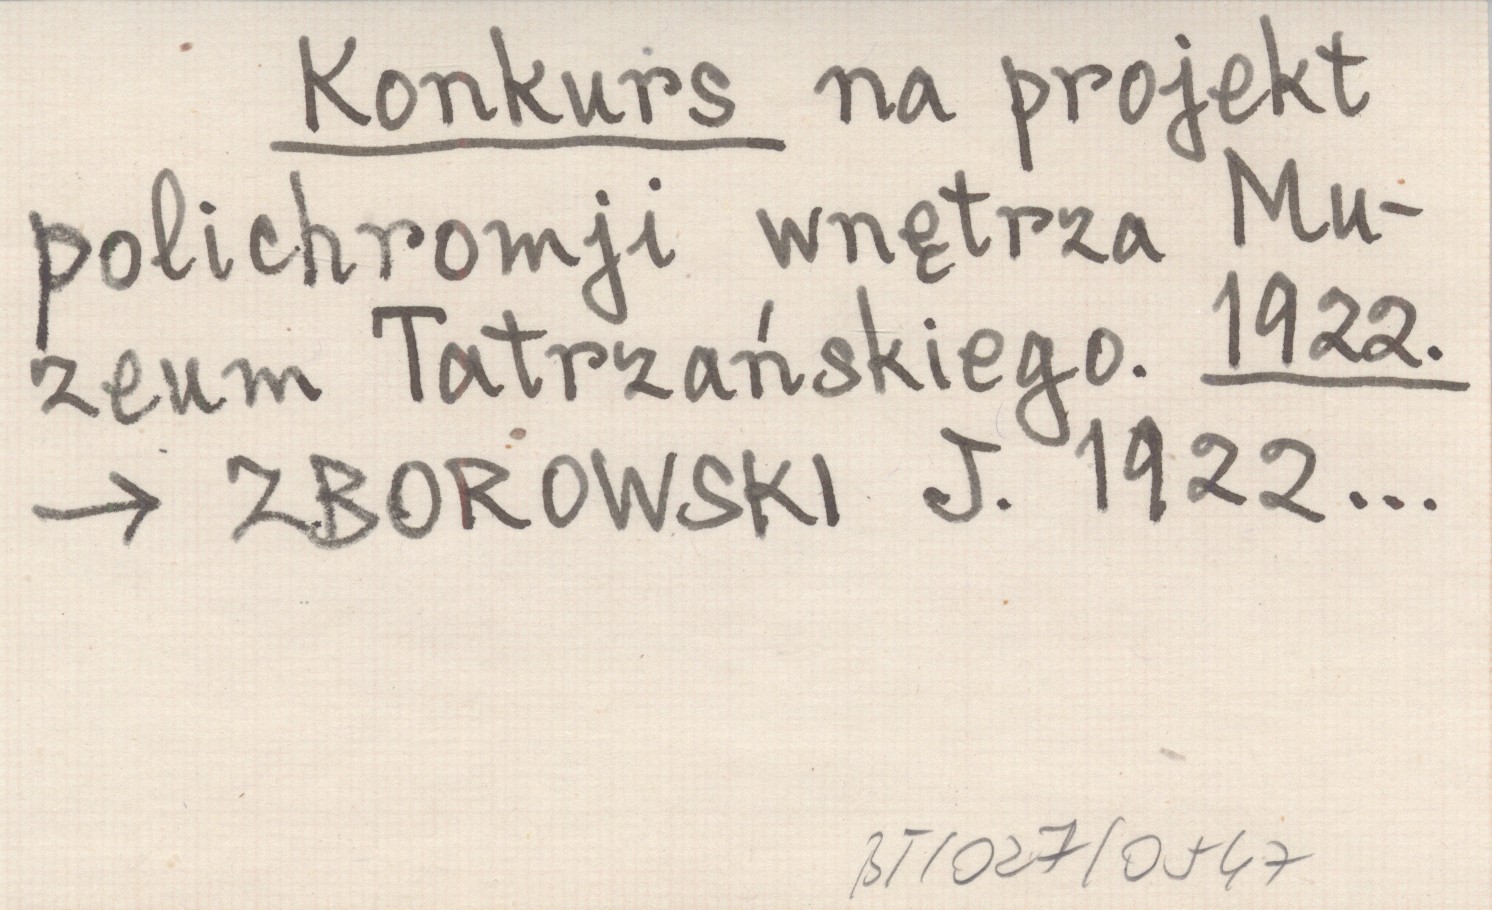 Konkurs na projekt
polichromji wnętrza Mu-
zeum Tatrzańskiego. 1922.
→ ZBOROWSKI J. 1922...
BT/027/0547